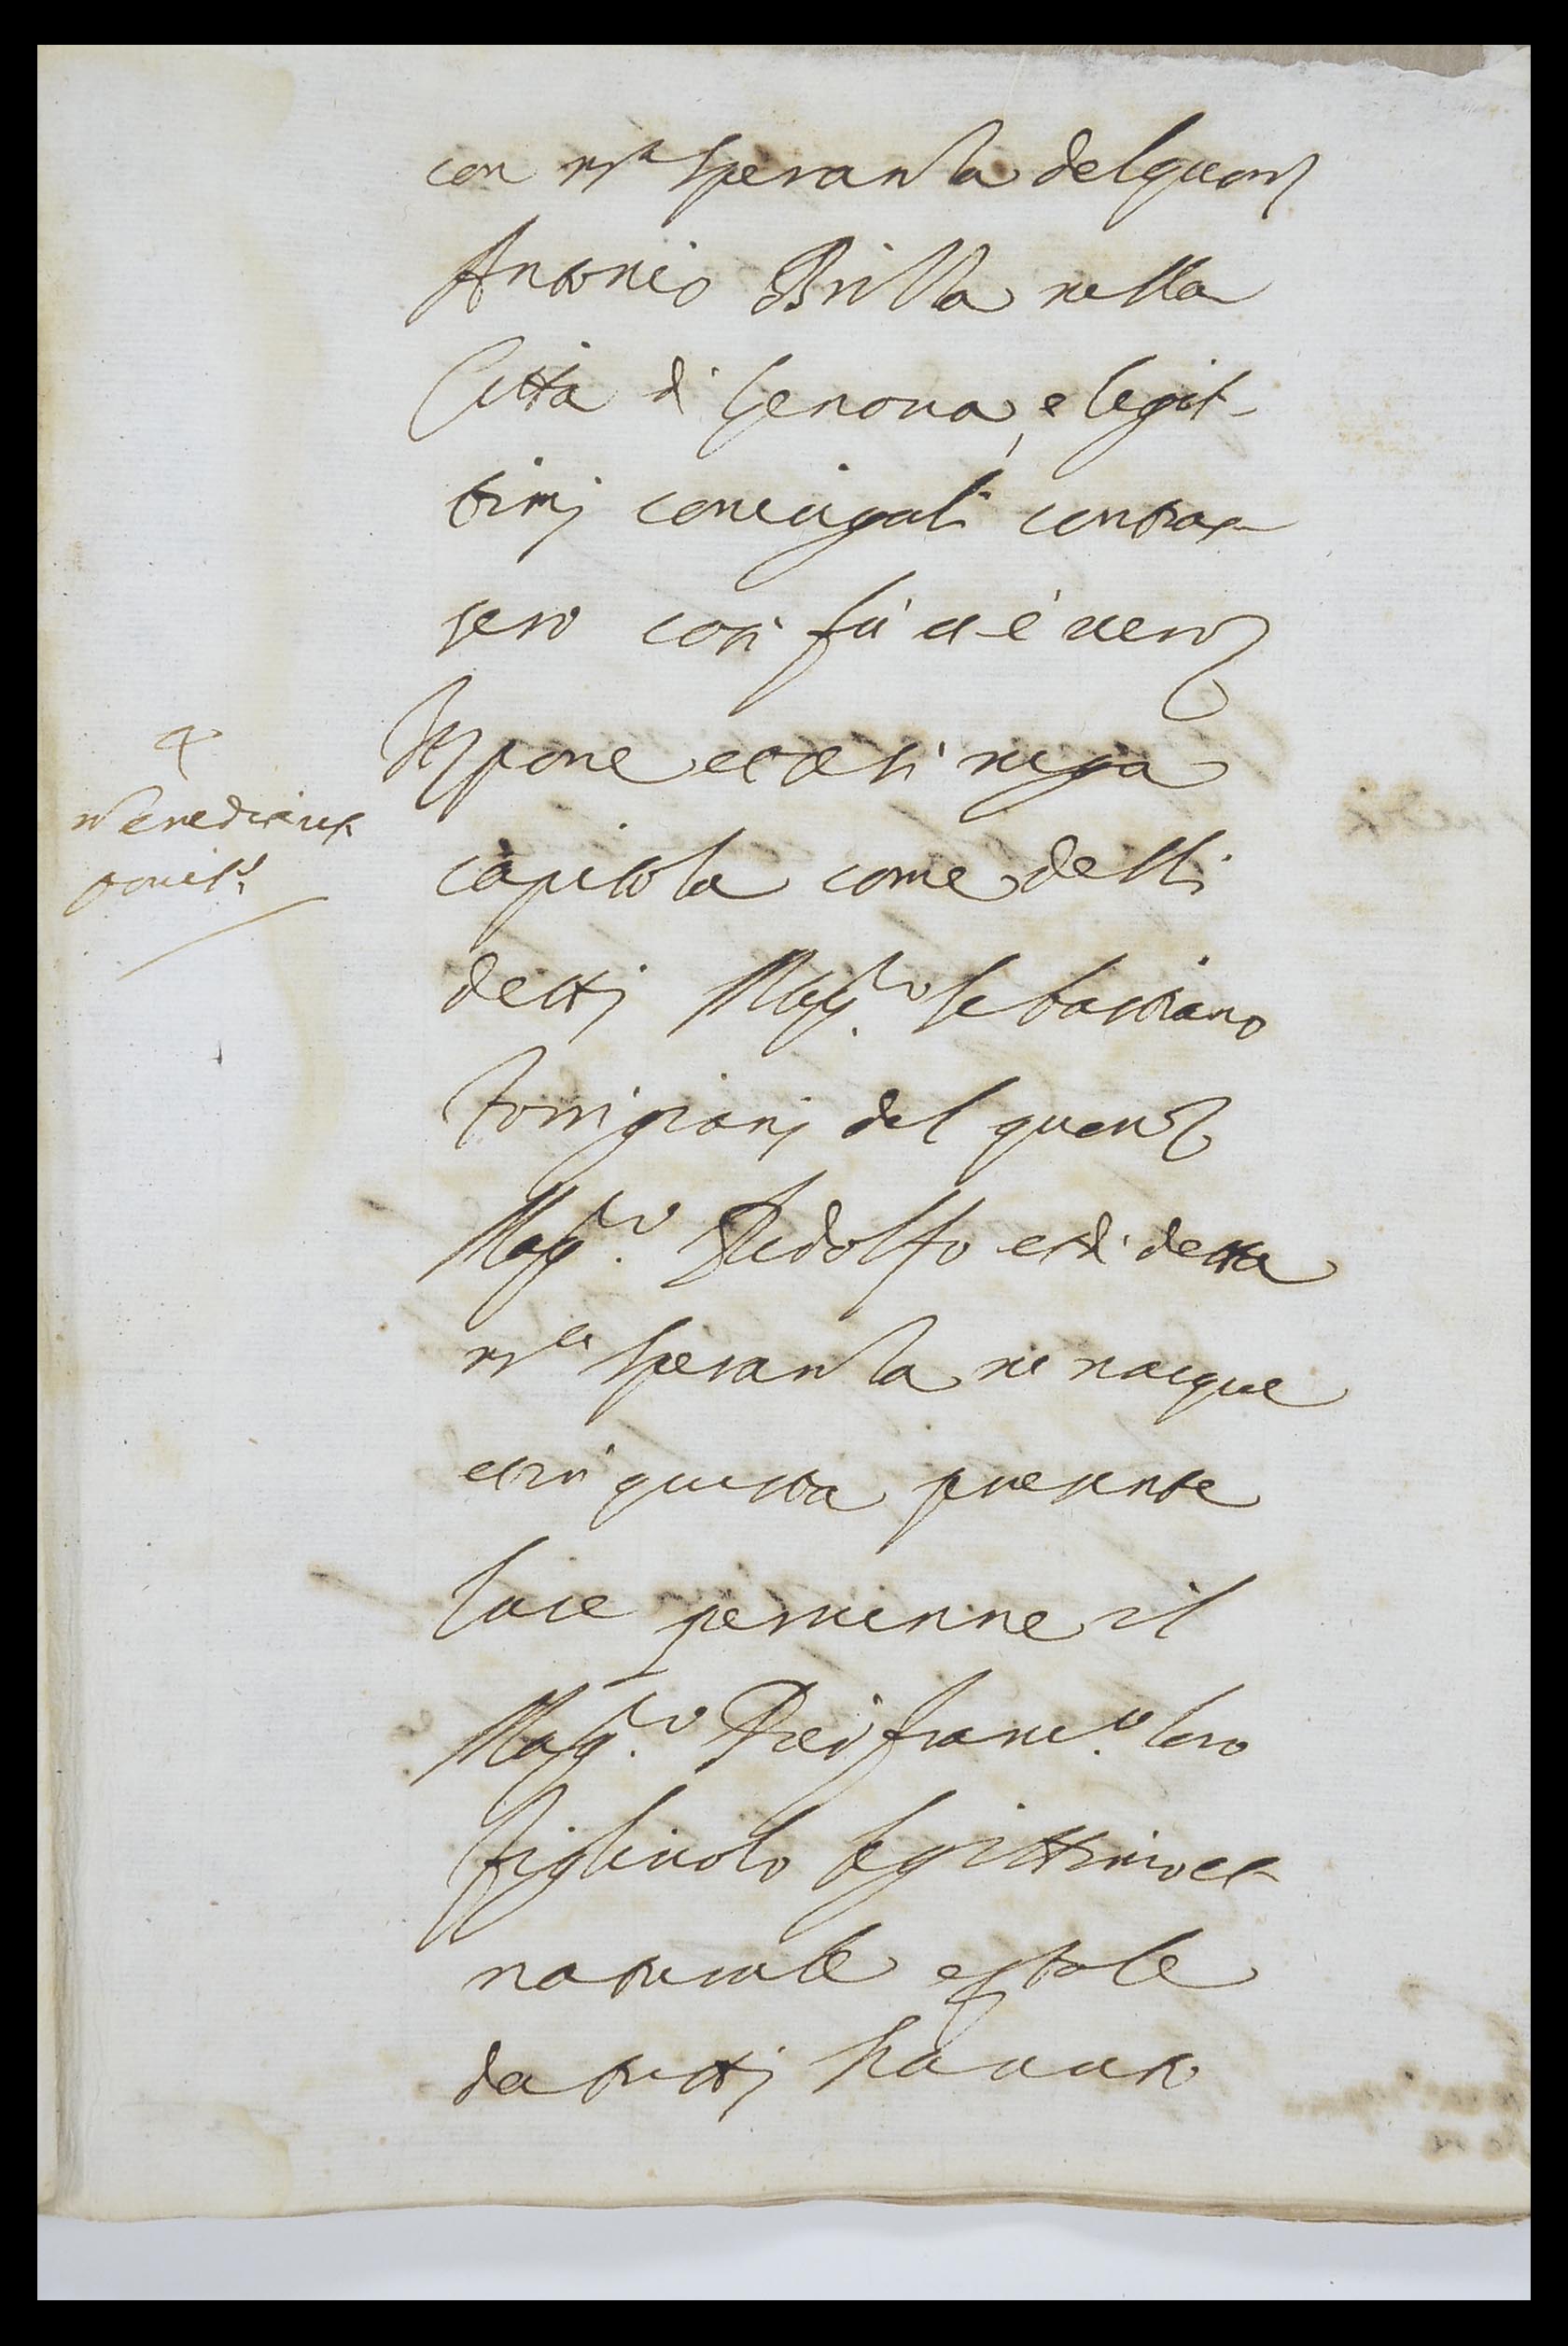 con m.ra Speranza del quom
Antonio Brilla nella
Città di Genova, e legit-
timi coniugali contras-
sero così fù et è vero
Ip pone et ce si nega
4
capitola come delli
detti Mag.co Sebastiano
Torrigiani del quom
Mag.co Ridolfo et di detta
m.ra Speranza ne nacque
et in questa presente
luce pervenne il
Mag.co Pier franc.o loro
figliuolo legittimo et
naturale e p tale
da tutti havuto